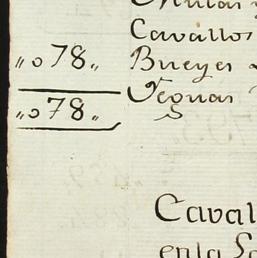 Mulas y
Cavallos
„078„ Bueyes
Yeguas
„078„
Caval
en la